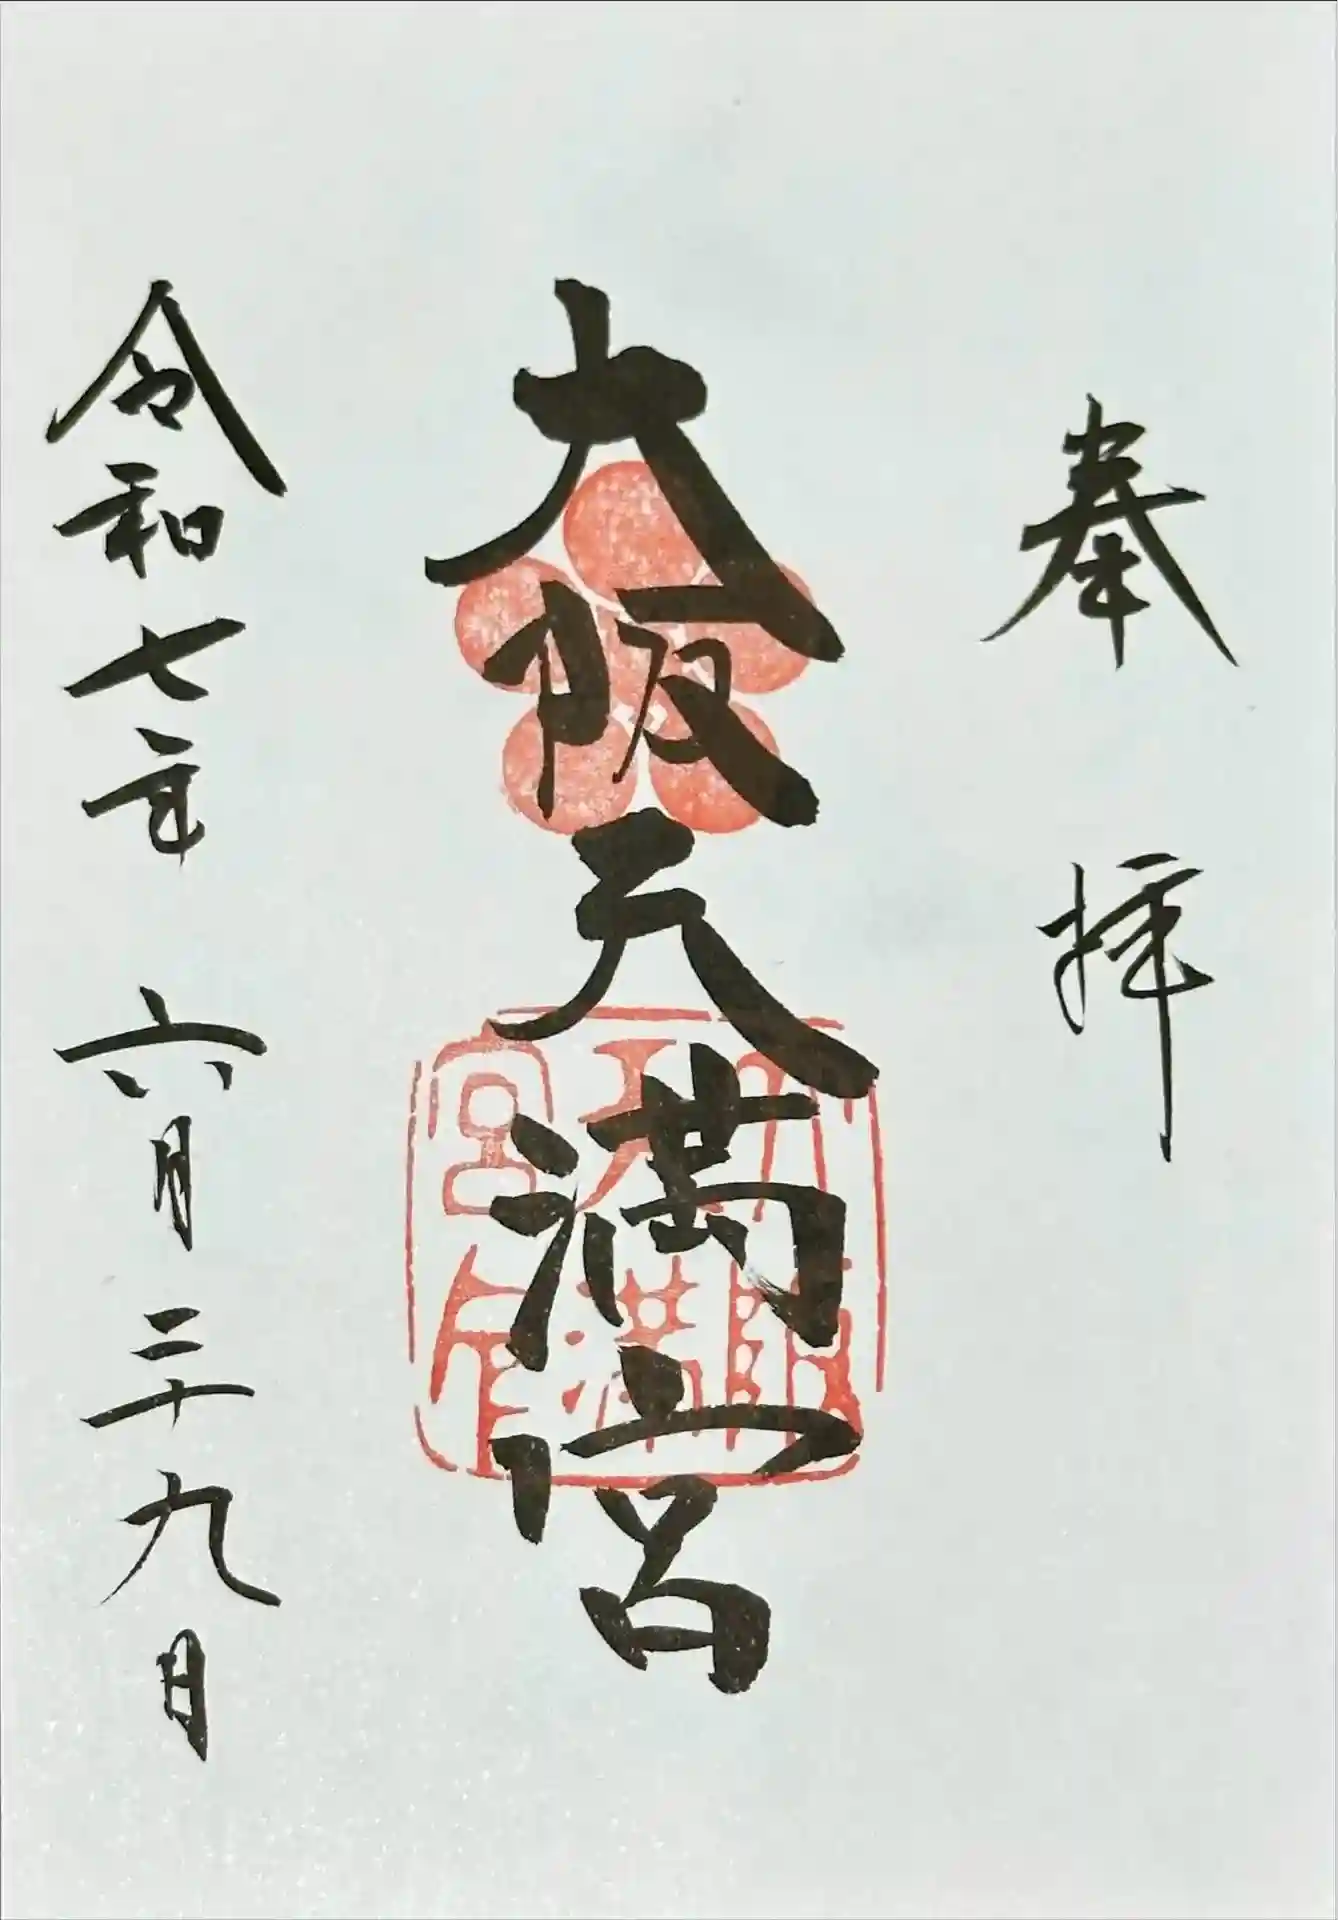 奉拝
大阪天満宮
大阪天満宮印
令和七年 六月二十九日